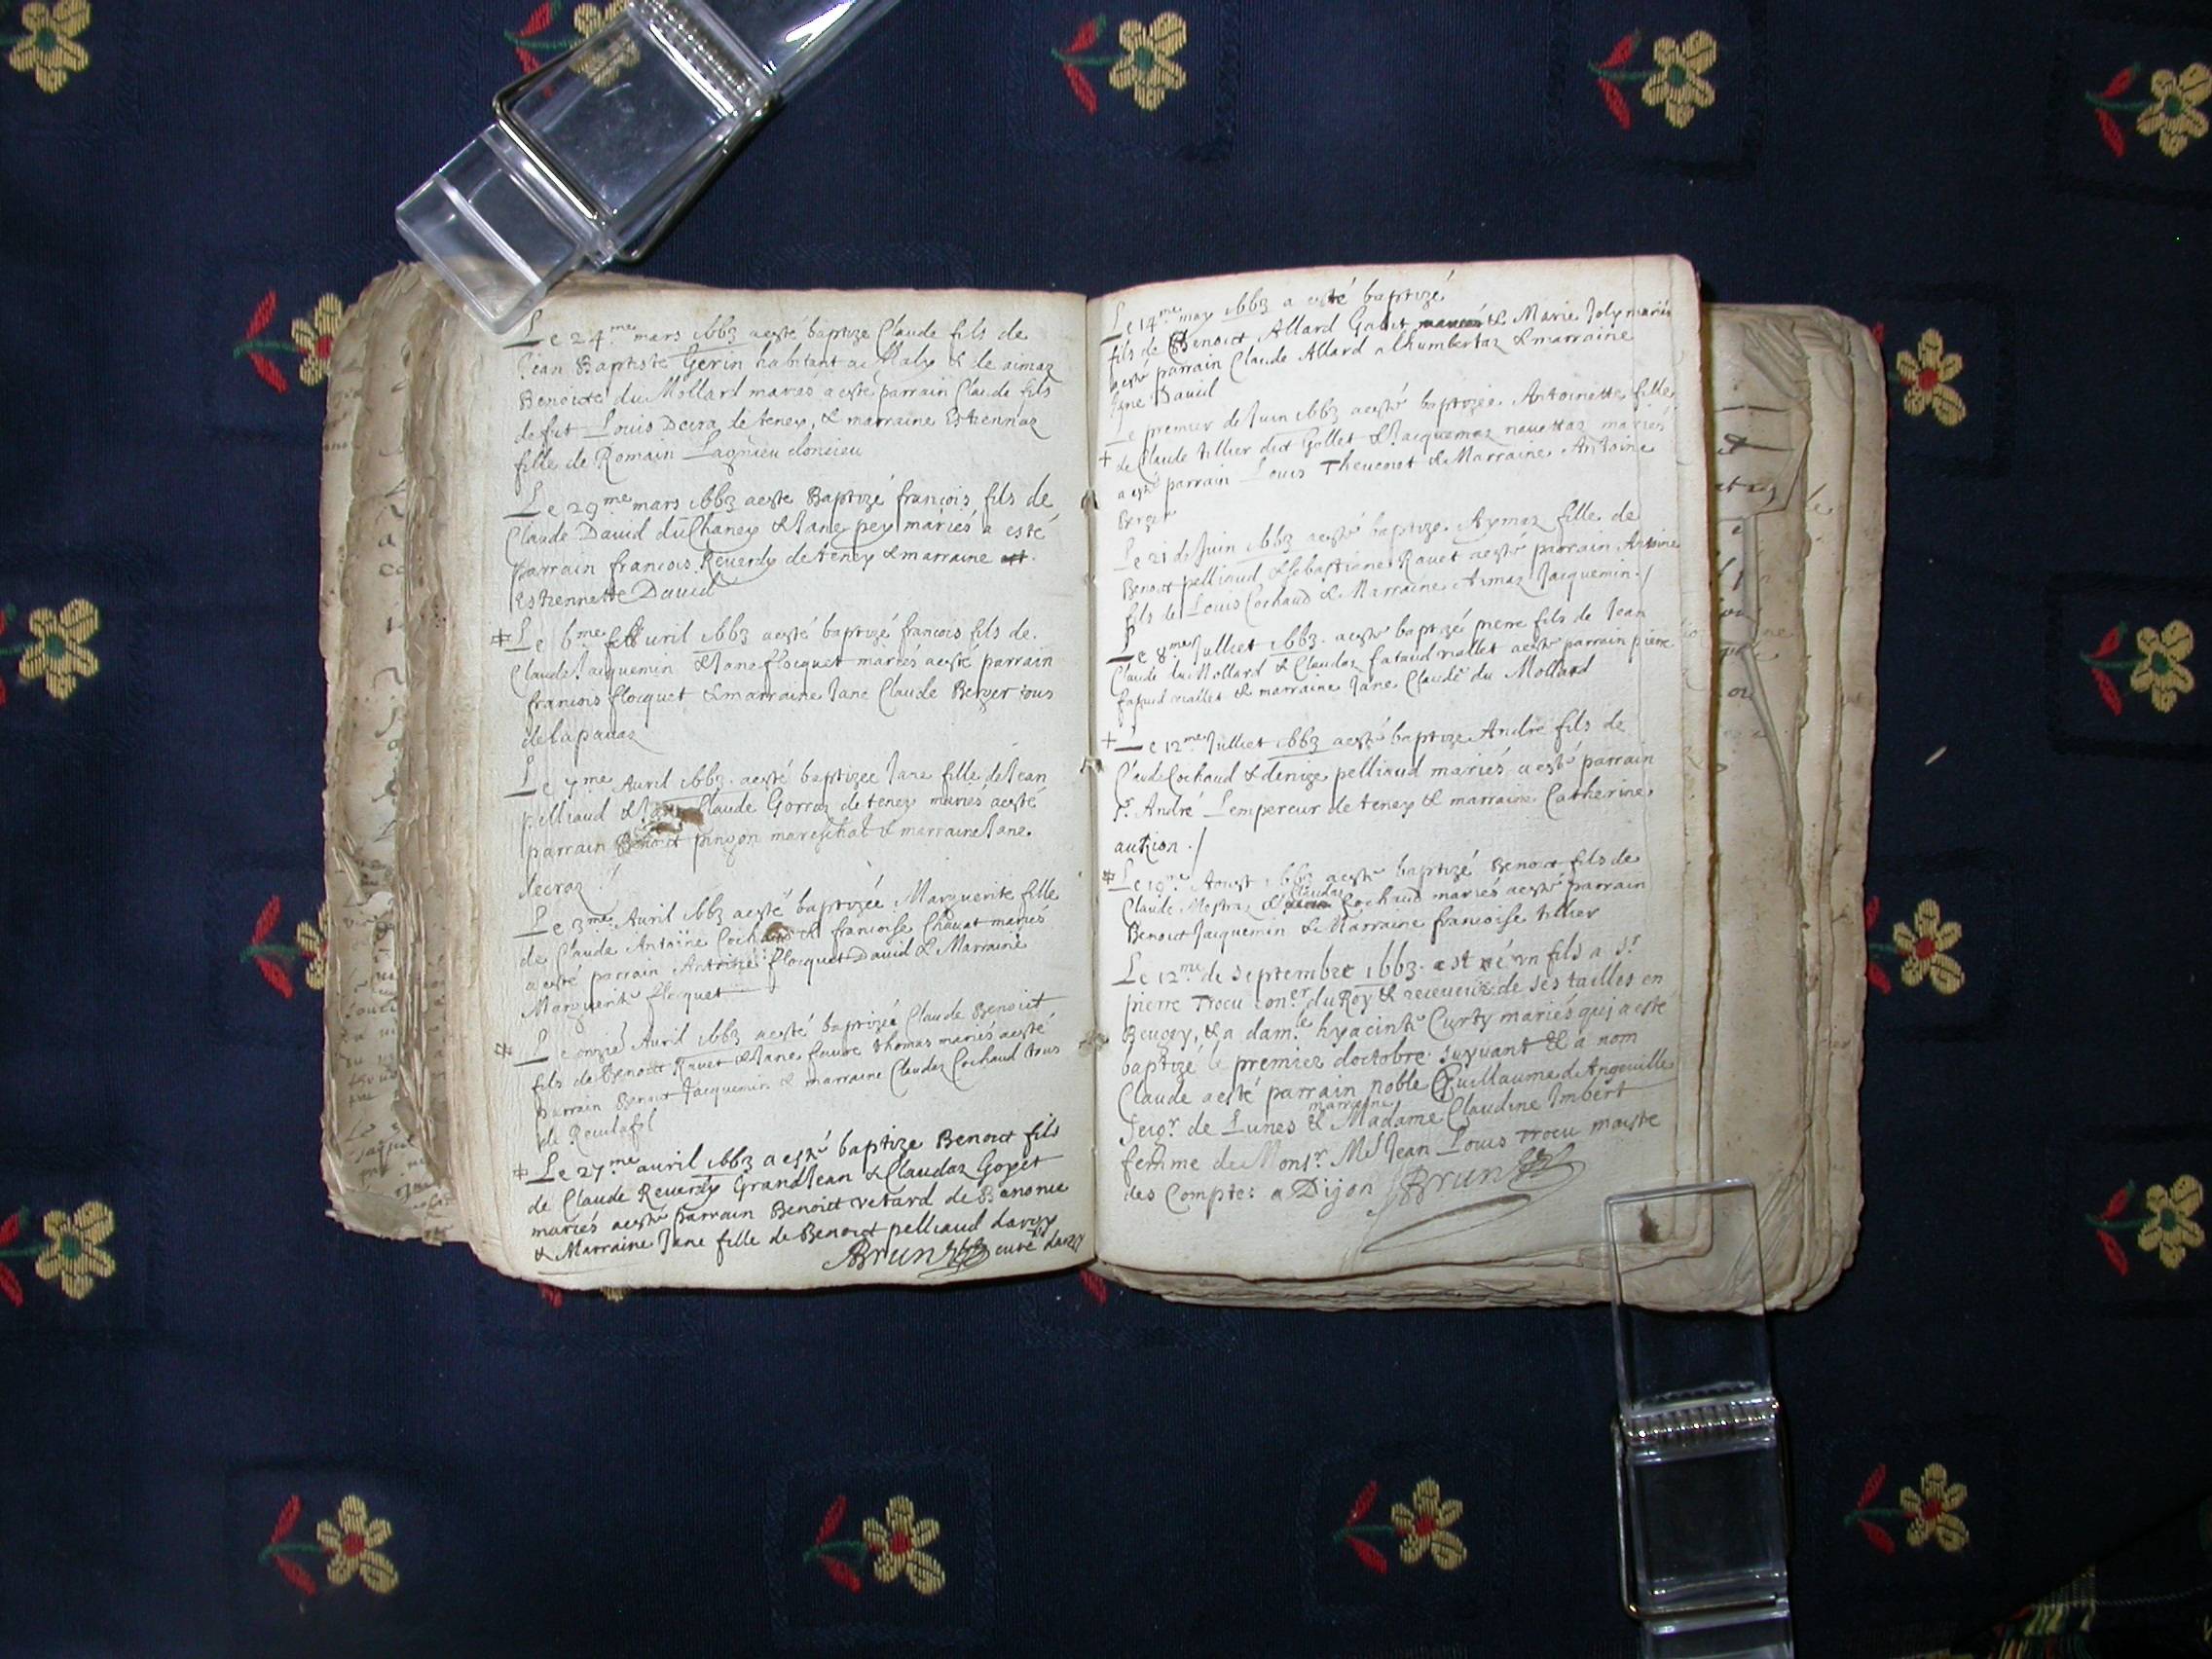 Le 24.me mars 1663 a esté baptizé Claude fils de
Jean Baptiste Gerin habitant a Malix & de aimaz
Benoicte du Mollard mariés a esté parrain Claude fils
de fut Louis Decra de teney, & marraine Estiennaz
fille de Romain Lagnieu donsieu
Le 29.me mars 1663 a esté Baptizé françois fils de
Claude David du Chaney & Jane pey mariés a esté
parrain françois Reverdy de teney & marraine
Estiennette David
Le 6.me avril 1663 a esté baptizé francois fils de
Claude Jacquemin & Jane flocquet mariés a esté parrain
francois flocquet & marraine Jane Claude Berger tous
de la pavaz
Le 7.me Avril 1663. a esté baptizee Jane fille de Jean
pelliaud & Jane Claude Gorraz de teney mariés a esté
parrain Benoict pinson mareschal & marraine Jane
decroz
Le 3.me Avril 1663 a esté baptizée Marguerite fille
de Claude Antoine Cochaud & francoise Chavat mariés
a esté parrain Antoine flocquet David & Marraine
Marguerite flocquet
Le onzie Avril 1663 a esté baptizé Claude Benoict
fils de Benoict Ravet & Jane favre thomas mariés a esté
parrain Benoict Jacquemin & marraine Claudaz Cochaud tous
de Revilafol
Le 27.me avril 1663 a esté baptize Benoict fils
de Claude Reverdy GrandJean & Claudaz Goyet
mariés a esté parrain Benoict vetard de Benonce
& Marraine Jane fille de Benoict pelliaud
Brun curé
Le 14.me may 1663 a esté baptizé
fils de Benoict Allard Galit & Marie Joly mariés
a esté parrain Claude Allard a Lhumbertaz & marraine
Jane David
Le premier de Juin 1663 a esté baptizée Antoinette fille
de Claude tillier dict Gollet & Jacquemaz navettaz mariés
a esté parrain Louis Thevenot & Marraine Antoine
Berger
Le 21 de Juin 1663 a esté baptize Aymaz fille de
Benoict pelliaud & sebastiane Ravet a esté parrain Antoine
fils de Louis Cochaud & Marraine Aimaz Jacquemin./
Le 8.me Julliet 1663. a esté baptizé pierre fils de Jean
Claude du Mollard & Claudaz fataud mallet a esté parrain pierre
fataud mallet & marraine Jane Claude du Mollard
Le 12.me Julliet 1663 a esté baptize André fils de
Claude Cochaud & denize pelliaud mariés a esté parrain
Sr. André Lempereur de teney & marraine Catherine
aution ./
Le 19.me Aoust 1663 a esté baptizé Benoict fils de
Claude Mestraz & Claudaz Cochaud mariés a esté parrain
Benoict Jacquemin & Marraine francoise tillier
Le 12.me de septembre 1663. est né un fils a Sr
pierre Trocu con.er du Roy & receveur de ses tailles en
Beugey, & a dam.le hyacinte Curty mariés qui a esté
baptizé le premier doctobre suyvant & a nom
Claude a esté parrain noble Guillaume d Angeville
seigr. de Lunes & marraine Madame Claudine Imbert
femme de Monsr. Me Jean Louis Trocu maistre
des Comptes a Dijon Brun